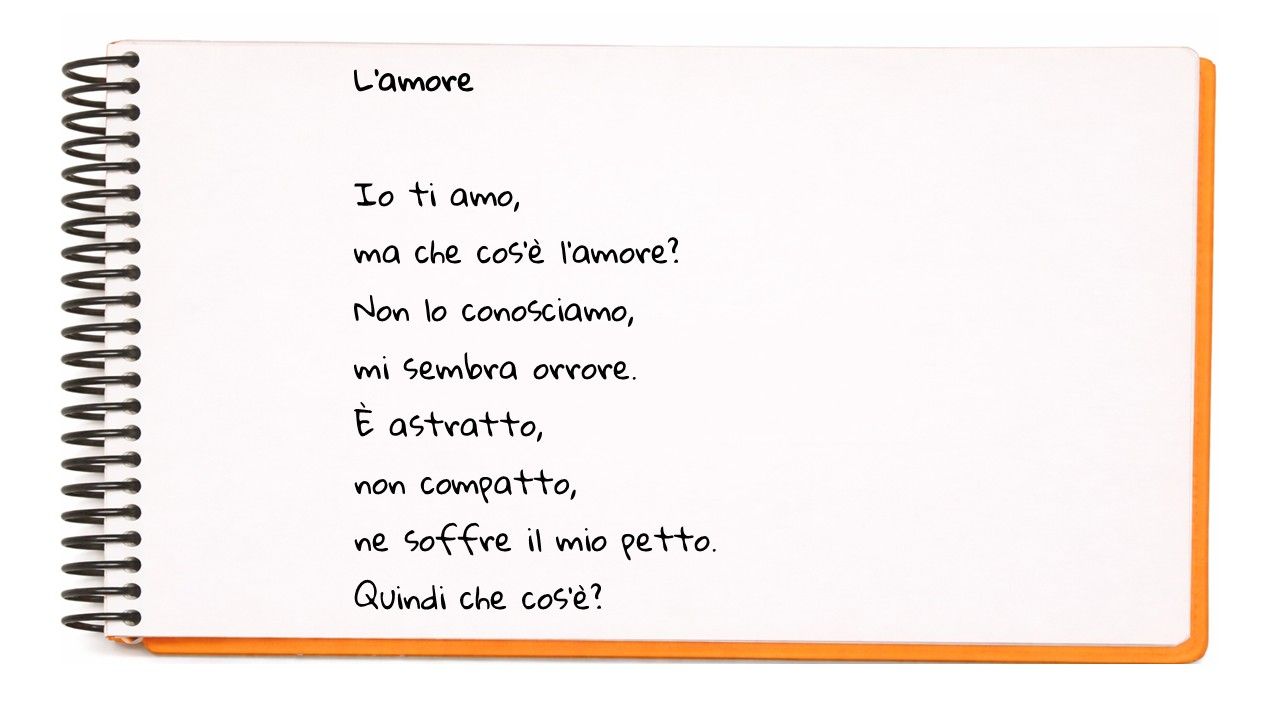 L'amore
Io ti amo,
ma che cos'è l'amore?
Non lo conosciamo,
mi sembra orrore.
È astratto,
non compatto,
ne soffre il mio petto.
Quindi che cos'è?